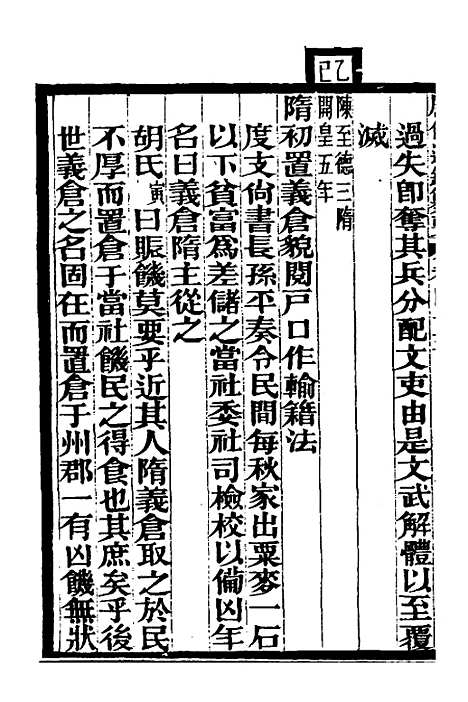 過失即奪其兵分配文吏由是文武解體以至覆
滅
乙巳
陳至德三隋
開皇五年
隋初置義倉貌閱戶口作輸籍法
度支尚書長孫平奏令民間每秋家出粟麥一石
以下貧富爲差儲之當社委社司檢校以備凶年
名曰義倉隋主從之
胡氏寅曰賑饑莫要乎近其人隋義倉取之於民
不厚而置倉于當社饑民之得食也其庶矣乎後
世義倉之名固在而置倉于州郡一有凶饑無狀